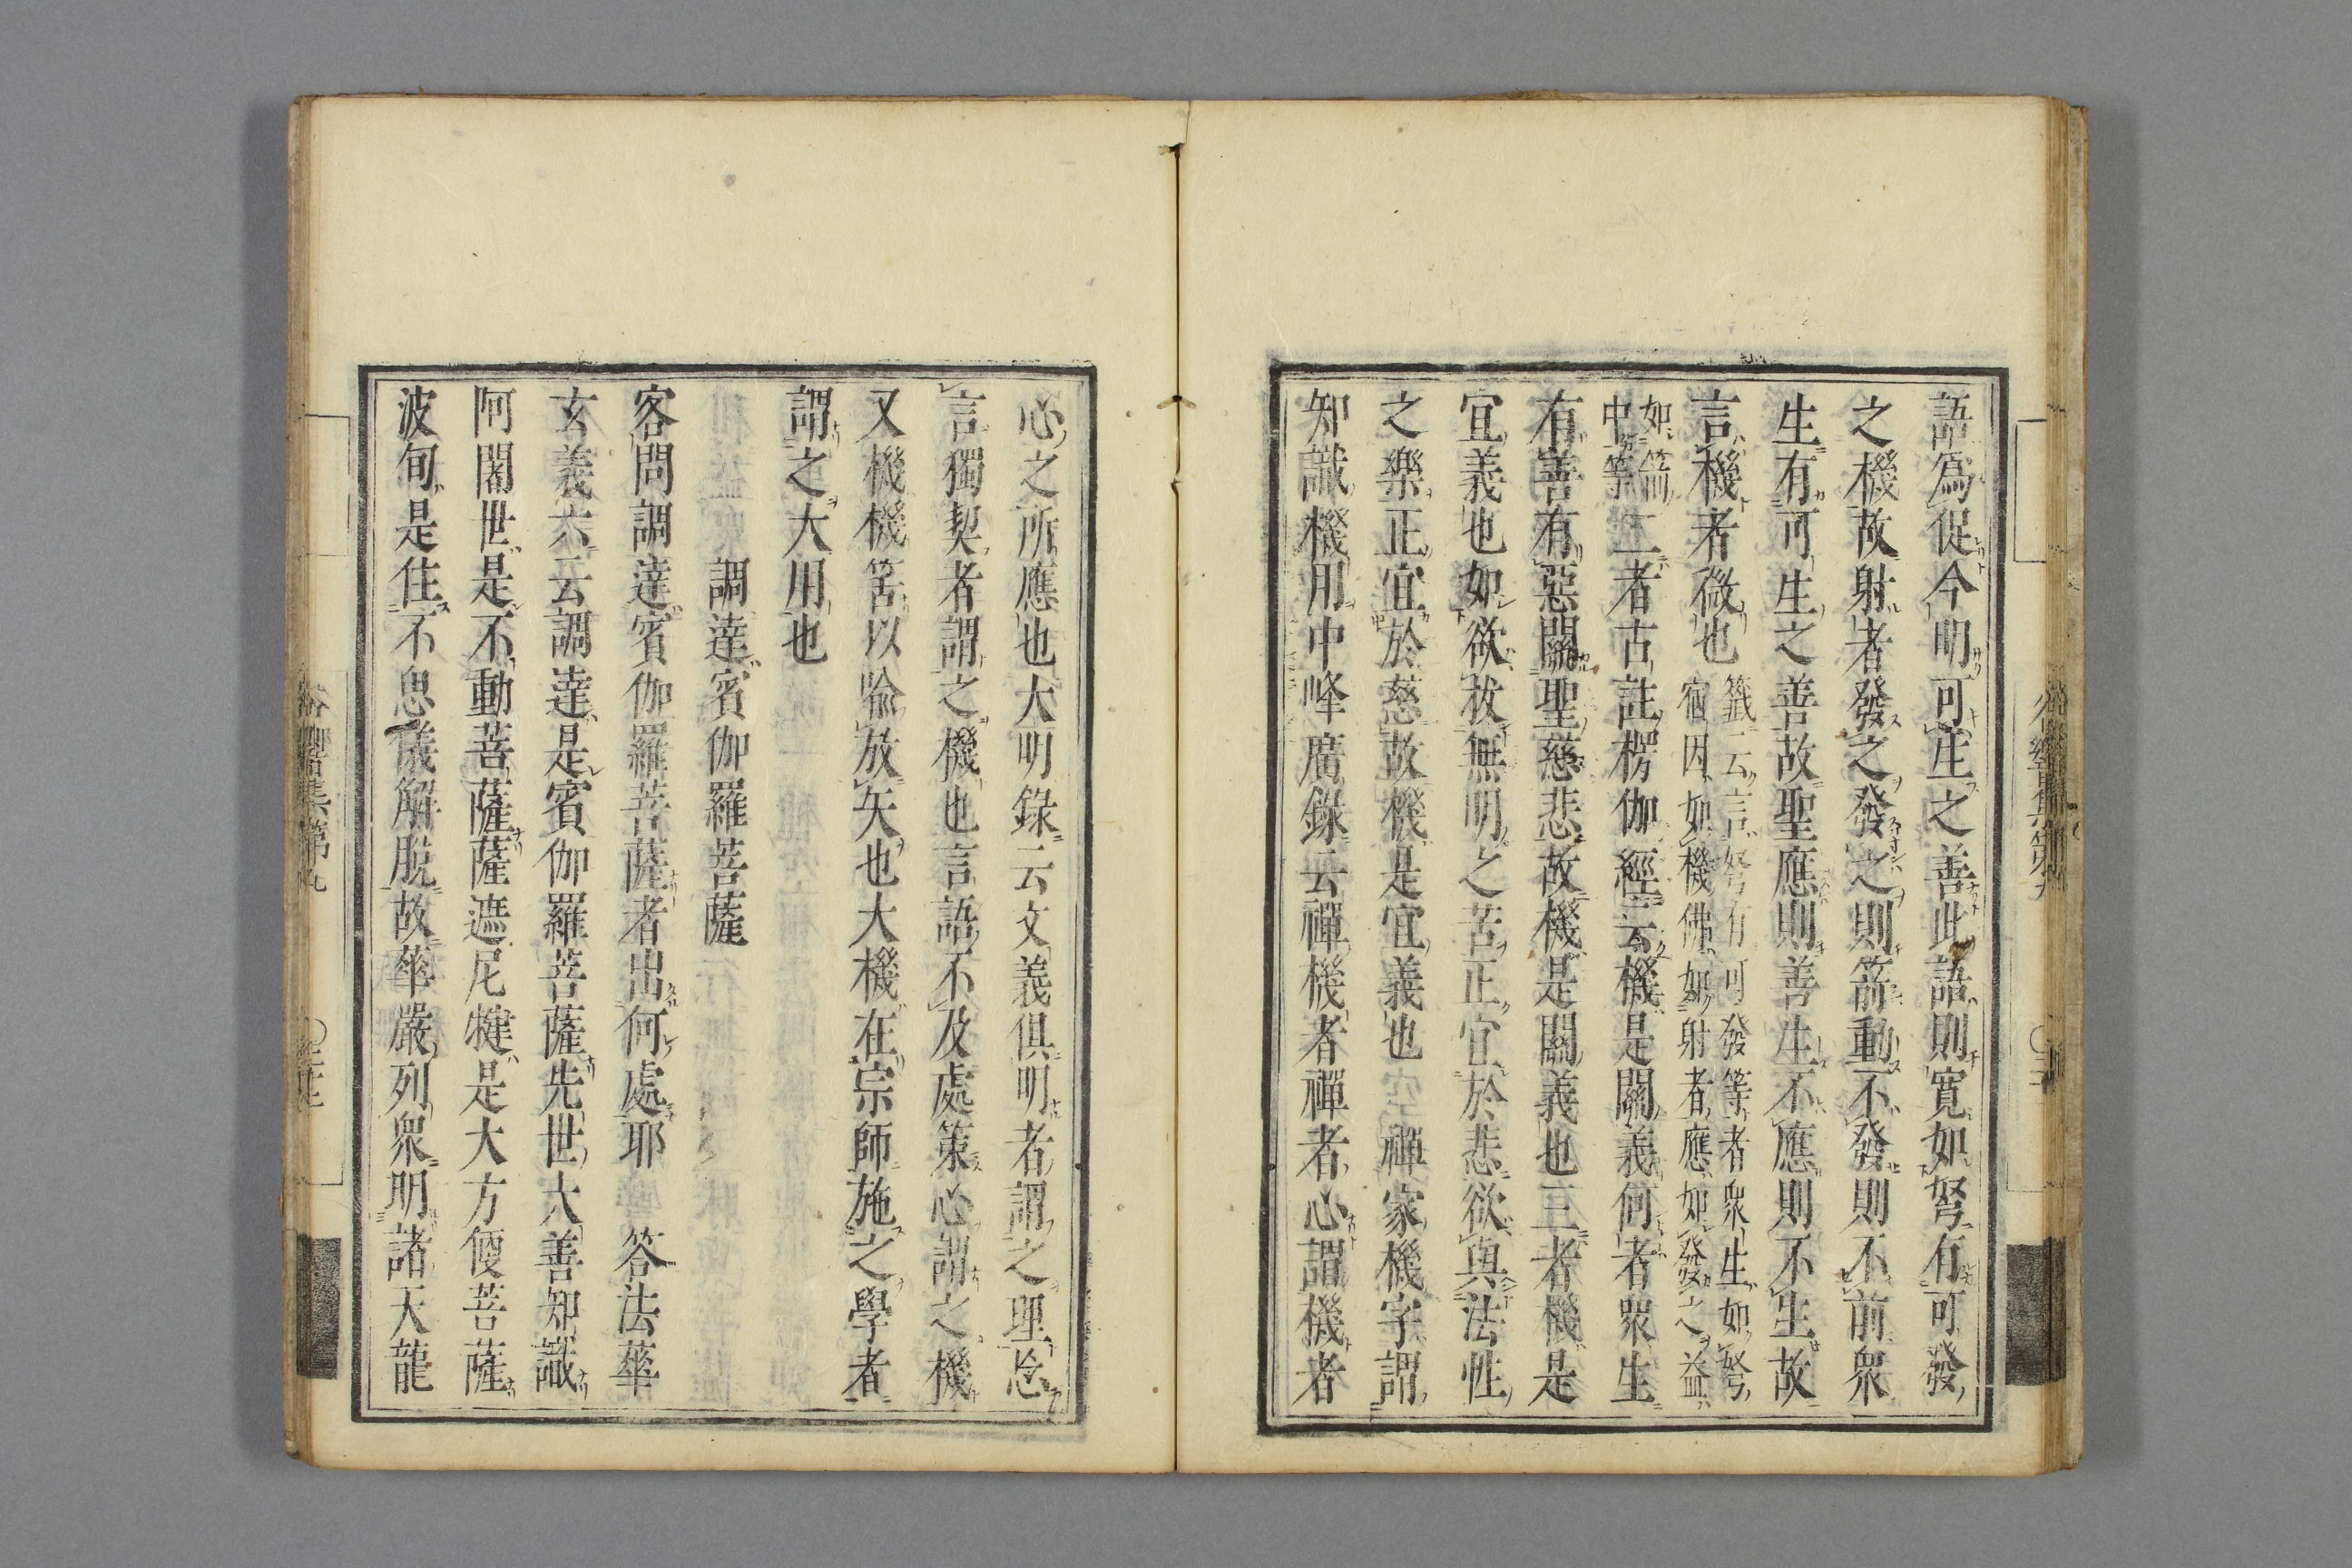 語爲促今明可生之善此語則寬如弩有可發
之機故射者發之發之則箭動不發則不前衆
生有可生之善故聖應則善生不應則不生故
言機者微也籤云言弩有可發等者衆生如弩
宿因如機佛如射者應如發之益
如箭
中等二者古註楞伽經云機是關義何者衆生
有善有惡關聖慈悲故機是關義也三者機是
宜義也如欲拔無明之苦正宜於悲欲與法性
之樂正宜於慈故機是宜義也 禪家機字謂
知識機用中峰廣錄云禪機者禪者心謂機者
心之所應也大明錄云文義俱明者謂之理忘
言獨契者謂之機也言語不及處策心謂之機
又機機筈以喩放矢也大機在宗師施之學者
謂之大用也
調達賓伽羅菩薩
客問調達賓伽羅菩薩者出何處耶 答法華
玄義六云調達是賓伽羅菩薩先世大善知識
阿闍世是不動菩薩薩遮尼犍是大方便菩薩
波旬是住不思議解脫故華嚴列衆明諸天龍